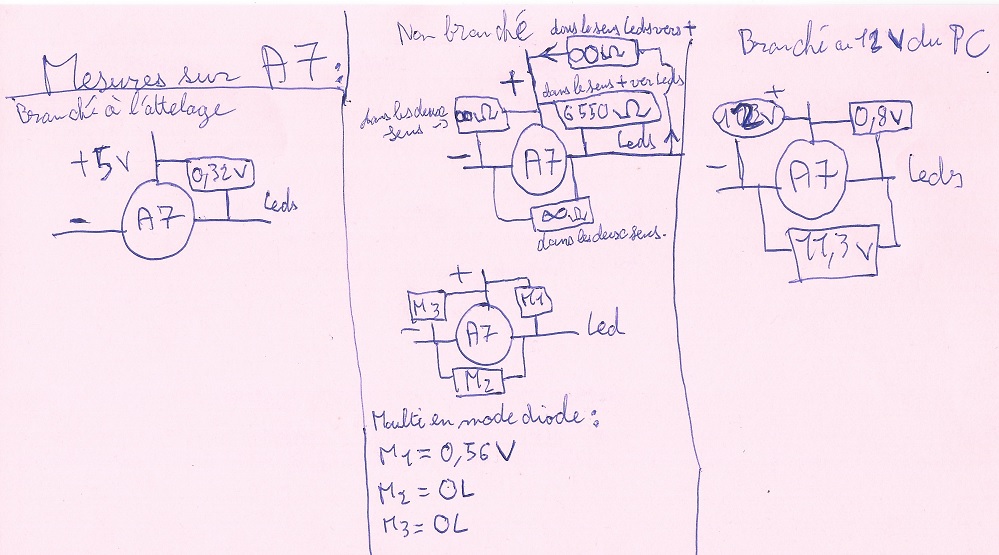 Mesures sur A7:
Branché à l'attelage
+5v
0,32V
-
A7
Leds
Non branché
dans le sens Leds vers +
∞Ω
+
dans le sens + ver Leds
6550Ω
dans les deux
sens →
∞Ω
-
A7
Leds
∞Ω
dans les deux sens.
+
M3
M1
-
A7
Led
M2
Multi en mode diode:
M1 = 0,56V
M2 = OL
M3 = OL
Branché au 12V du PC
+
0,8v
-
A7
Leds
11,3v